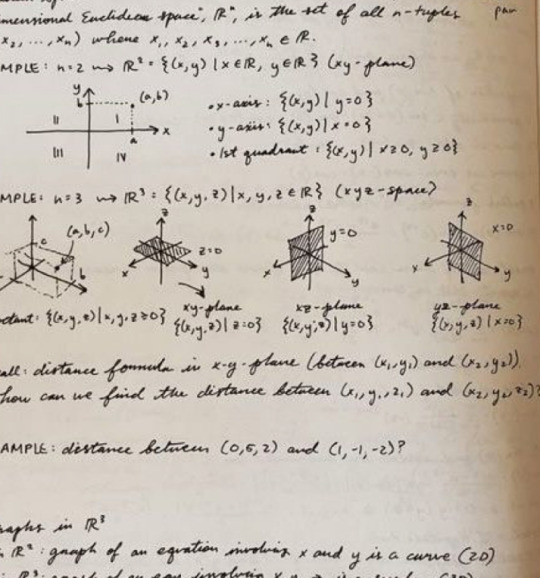 imensional Euclidean space", ℝⁿ, is the set of all n-tuples
x₂, ..., xₙ) where x₁, x₂, x₃, ..., xₙ ∈ ℝ.
MPLE: n=2 ⇝ ℝ² = {(x,y) | x∈ℝ, y∈ℝ} (xy-plane)
y
b (a,b)
II I
a x
III IV
• x-axis: {(x,y) | y=0}
• y-axis: {(x,y) | x=0}
• 1st quadrant: {(x,y) | x≥0, y≥0}
MPLE: n=3 ⇝ ℝ³ = {(x,y,z) | x,y,z ∈ ℝ} (xyz-space)
c (a,b,c) b
z z=0 x y
z y=0 x y
z x=0 x y
xy-plane xz-plane yz-plane
ctant: {(x,y,z) | x,y,z≥0} {(x,y,z) | z=0} {(x,y,z) | y=0} {(x,y,z) | x=0}
all: distance formula in x-y-plane (between (x₁,y₁) and (x₂,y₂)).
how can we find the distance between (x₁,y₁,z₁) and (x₂,y₂,z₂)?
AMPLE: distance between (0,5,2) and (1,-1,-2)?
raphs in ℝ³
ℝ²: graph of an equation involving x and y is a curve (2D)